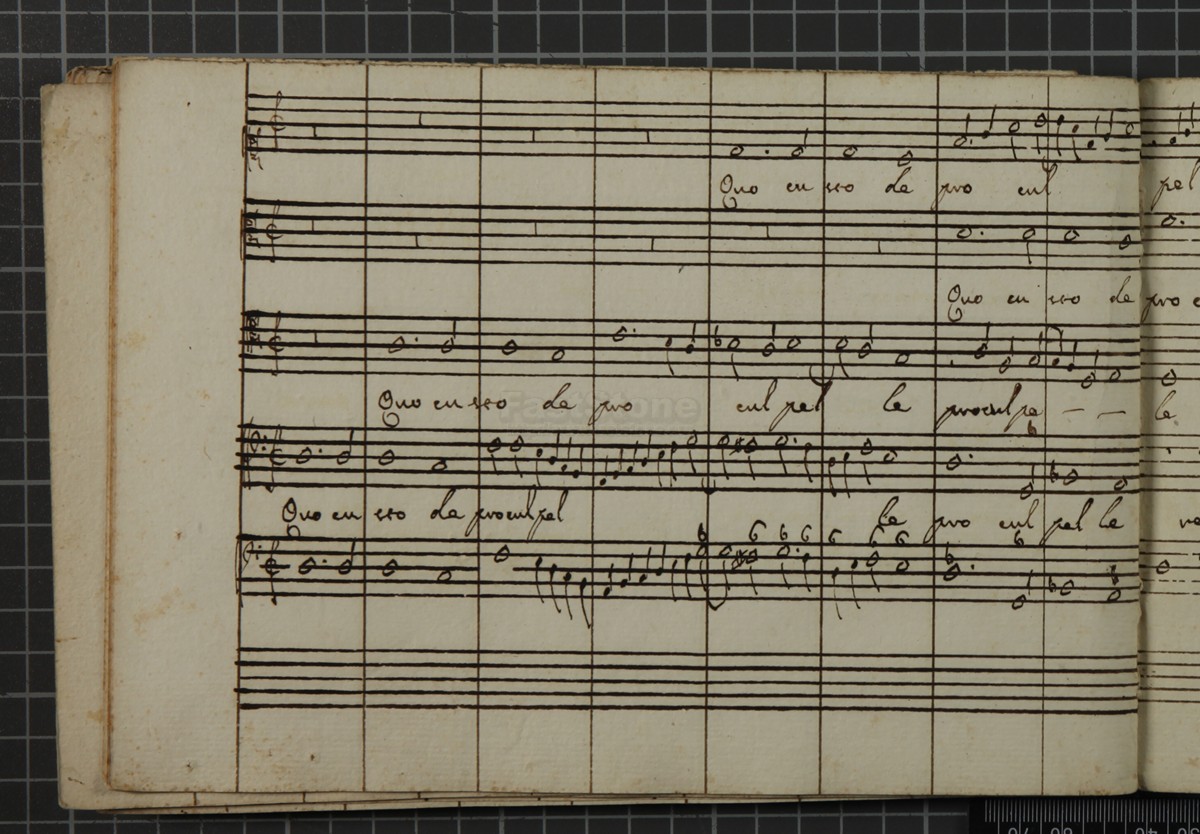 Quo cu sso de pro cul pel
Quo cu sso de pro c
Quo cu sso de pro cul pel le proculpe - - le
6
Quo cu sso de proculpel le pro cul pel le
6 6 6 6 6 6 6 6